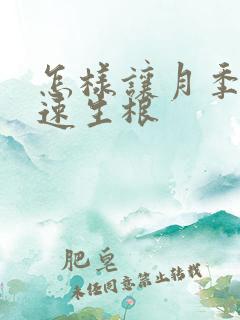 怎樣讓月季
速生根
肥皂
未经同意禁止转载